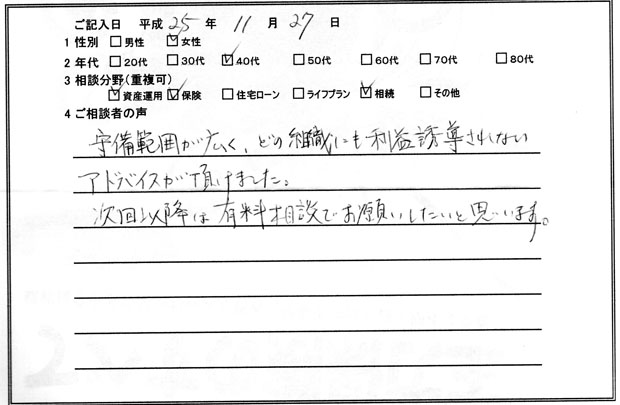 ご記入日 平成 25 年 11 月 27 日
1 性別 □男性 ☑女性
2 年代 □20代 □30代 ☑40代 □50代 □60代 □70代 □80代
3 相談分野(重複可)
☑資産運用 ☑保険 □住宅ローン □ライフプラン ☑相続 □その他
4 ご相談者の声
守備範囲が広く、どの組織にも利益誘導されない
アドバイスが頂けました。
次回以降は有料相談でお願いしたいと思います。